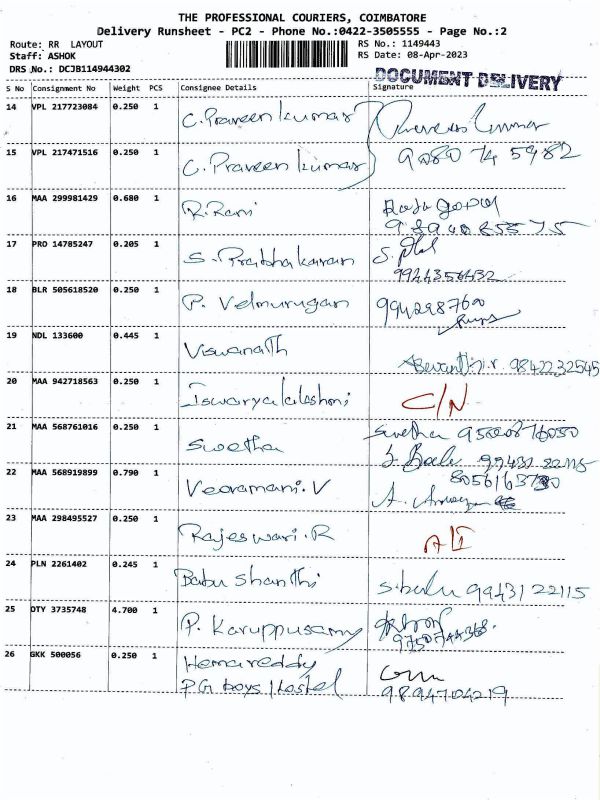 THE PROFESSIONAL COURIERS, COIMBATORE
Delivery Runsheet - PC2 - Phone No.:0422-3505555 - Page No.:2
Route: RR LAYOUT RS No.: 1149443
Staff: ASHOK RS Date: 08-Apr-2023
DRS No.: DCJB114944302 DOCUMENT DELIVERY
S No Consignment No Weight PCS Consignee Details Signature
14 VPL 217723084 0.250 1 C. Praveen kumar
15 VPL 217471516 0.250 1 C. Praveen kumar 9080 74 5982
16 MAA 299981429 0.680 1 R. Rani Raja gopal
17 PRO 14785247 0.205 1 S. Prabhakaran
9944356432
18 BLR 505618520 0.250 1 P. Velmurugan 9942987600
19 NDL 133600 0.445 1 Viswanath 9842232545
20 MAA 942718563 0.250 1 Iswaryalakshmi C/N
21 MAA 568761016 0.250 1 Swetha Swetha
S. Balu 99431 22115
22 MAA 568919899 0.790 1 Veeramani. V
23 MAA 298495527 0.250 1 Rajeswari. R
24 PLN 2261402 0.245 1 Babu Shanthi S. balu 99431 22115
25 OTY 3735748 4.700 1 P. Karuppusamy
26 GKK 500056 0.250 1 Hemareddy
PG boys Hostel 9894704219